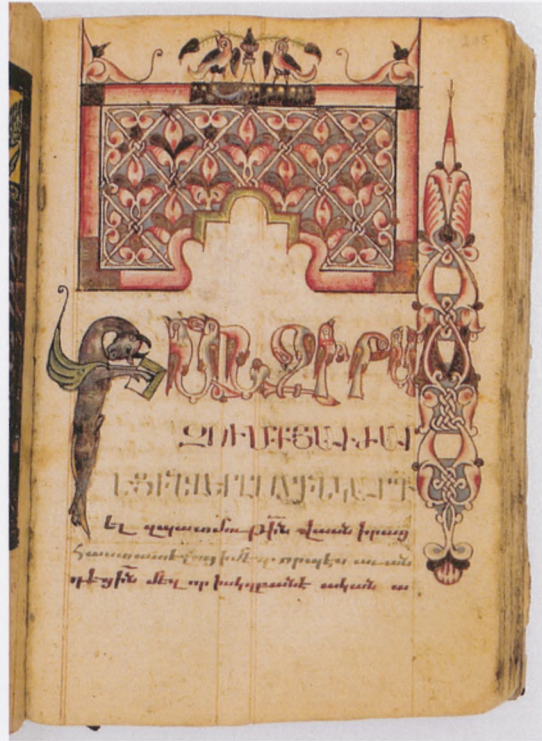 ՔԱՆԶԻ ԲԱ
ԶՈՒՄՔ ՅԱՒԺԱՐ
ԵՑԻՆ ՎԵՐՍՏԻՆ ԿԱՐԳ
ել զպատմութիւն վասն իրաց
հաստատելոց ի մեզ. որպէս աւան
դեցին մեզ որ իսկզբանէ ական ա